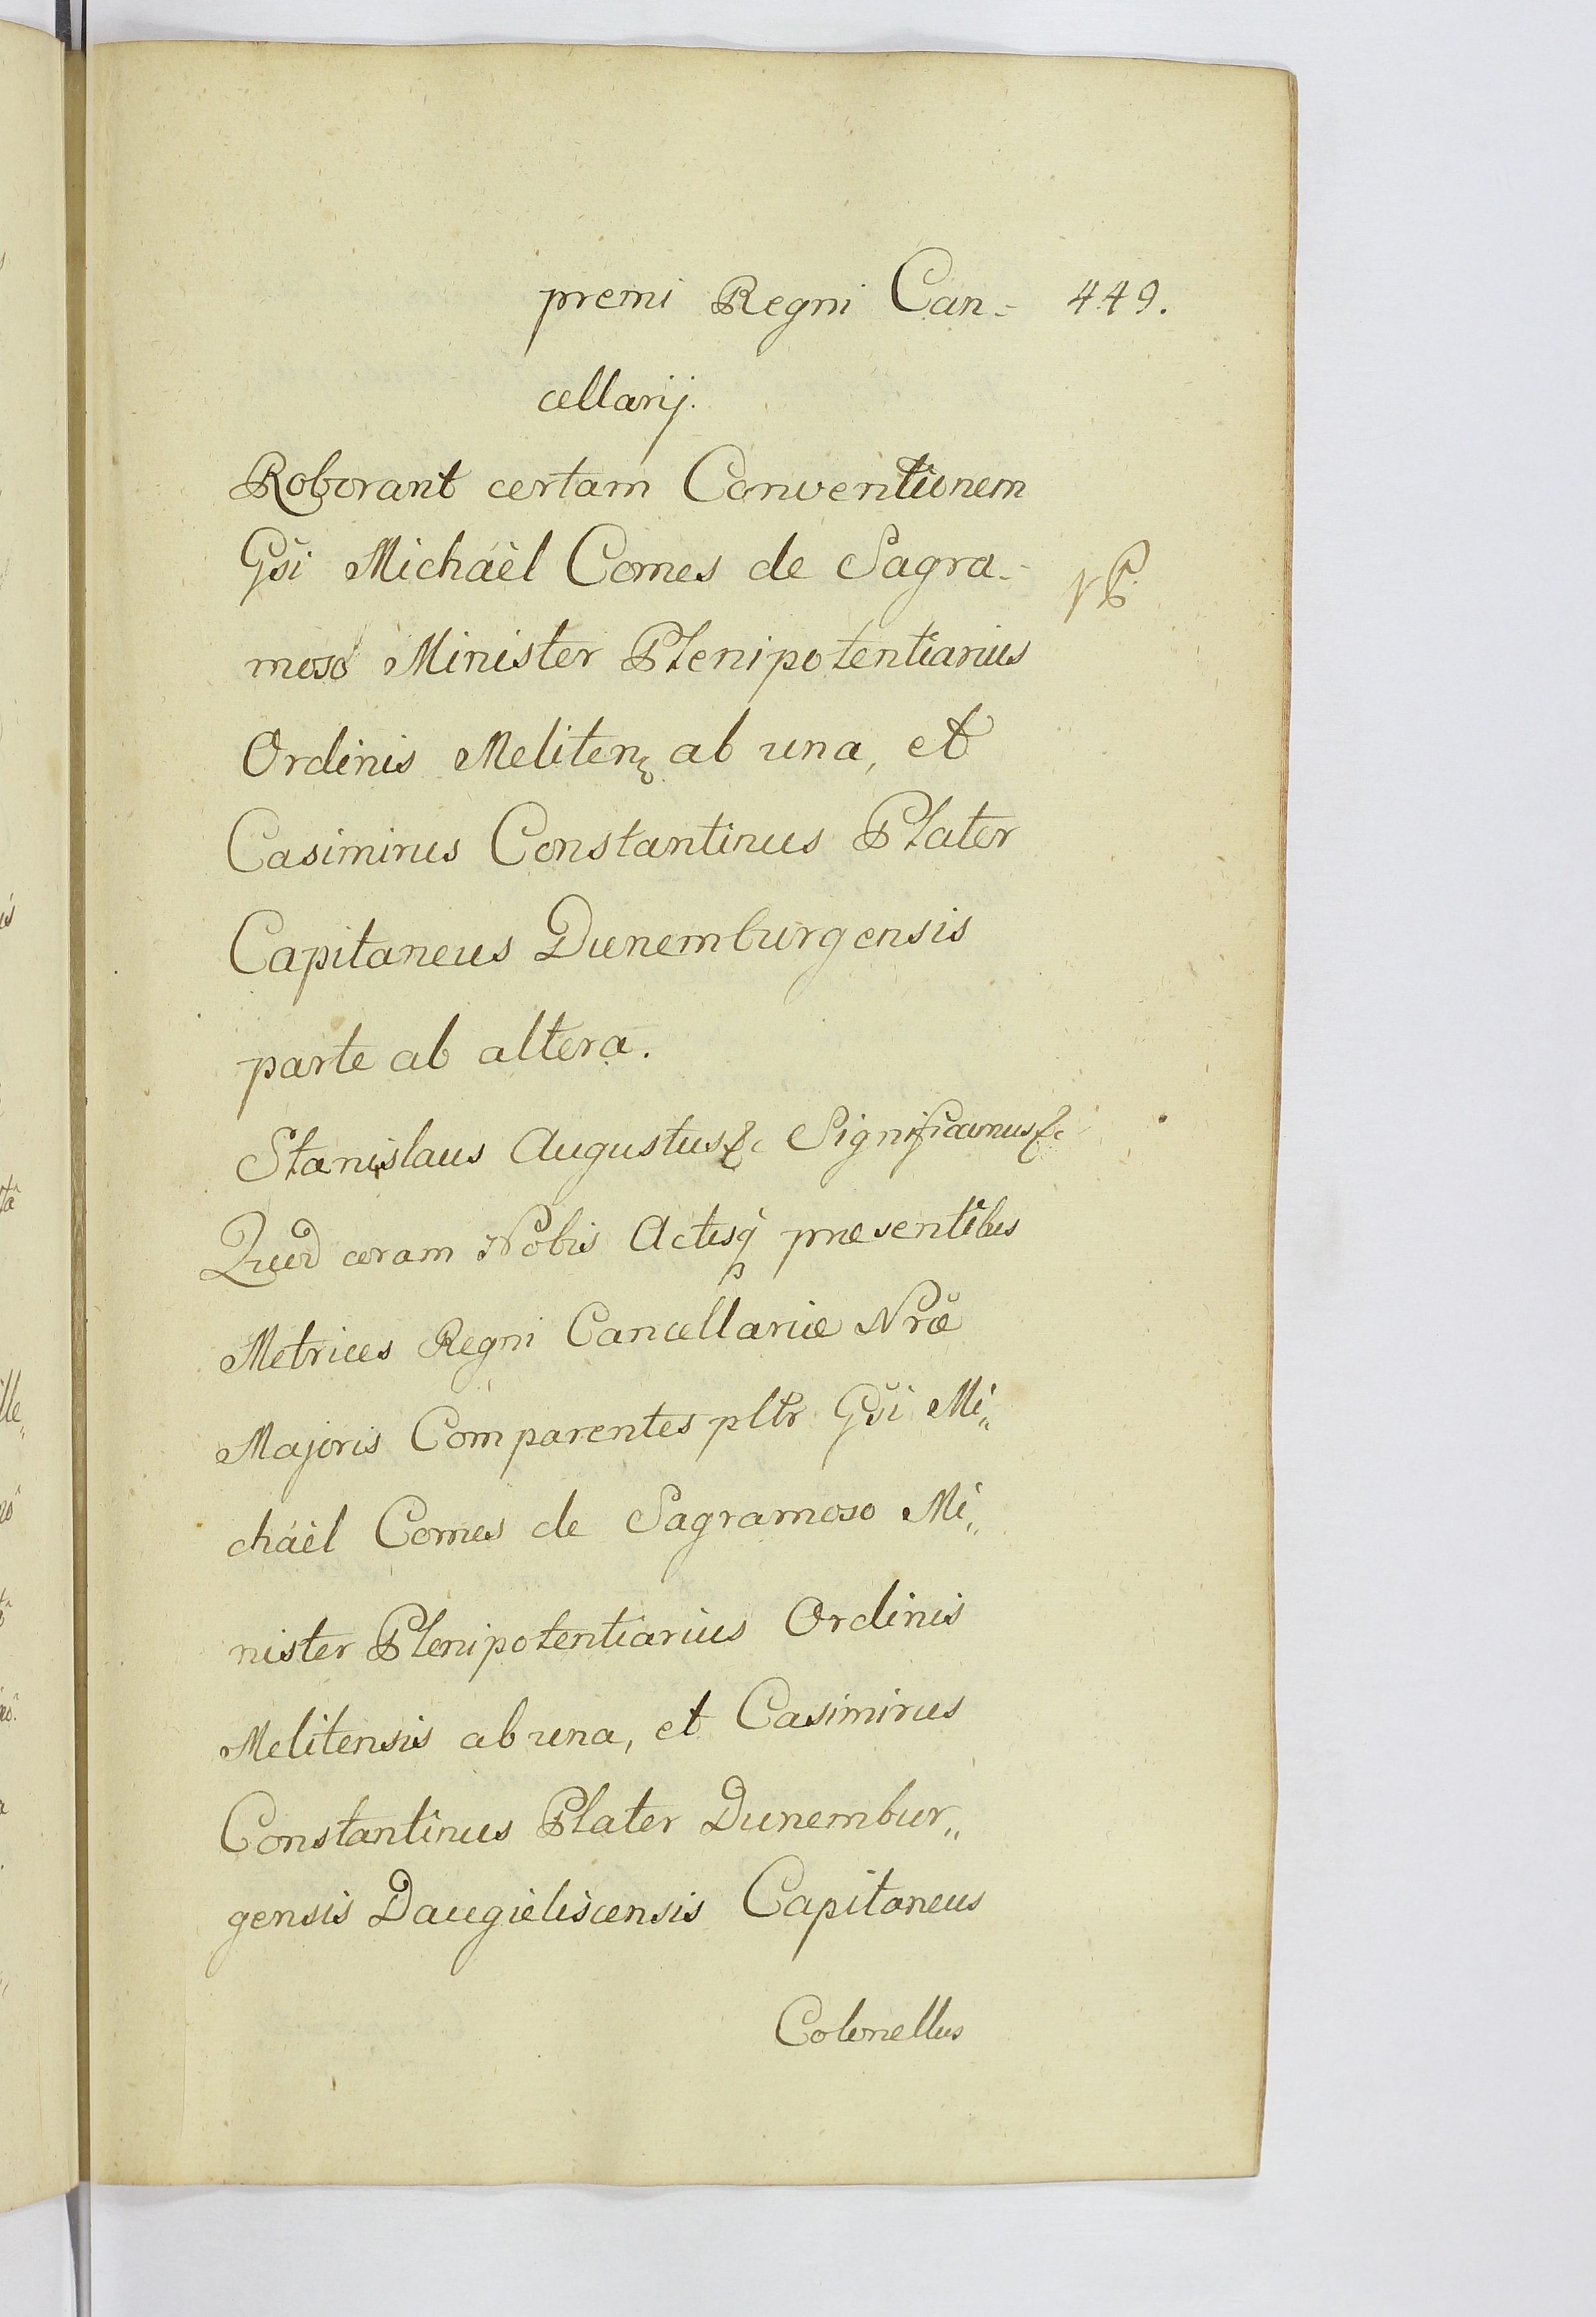 premi Regni Can= 449.
cellarij.
Roborant certam Conventionem
Gsi Michäel Comes de Sagra=
moso Minister Plenipotentiarius
Ordinis Meliten ab una, et
Casimirus Constantinus Plater
Capitaneus Dunemburgensis
parte ab altera.
Stanislaus Augustus &c Significamus &c
Quod coram Nobis Actisq̃ præsentibus
Metrices Regni Cancellariæ Nræ
Majoris Comparentes pltr Gsi Mi„
chäel Comes de Sagramoso Mi„
nister Plenipotentiarius Ordinis
Melitensis ab una, et Casimirus
Constantinus Plater Dunembur„
gensis Daugieliscensis Capitaneus
Colonellus